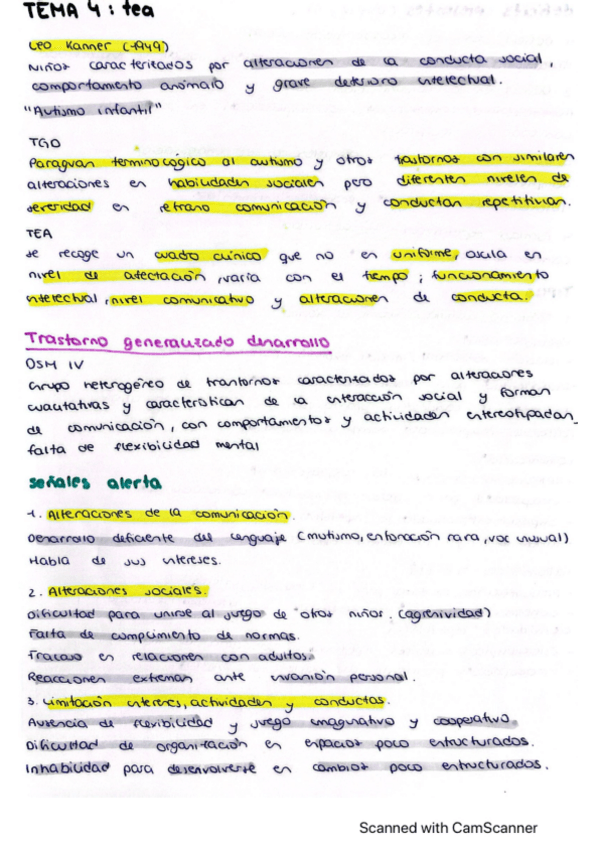 TEMA 4 : tea
Leo Kanner (1949)
Niños caracterizados por alteraciones de la conducta social,
comportamiento anómalo y grave deterioro intelectual.
"Autismo infantil"
TGD
Paraguas terminológico al autismo y otros trastornos con similares
alteraciones en habilidades sociales pero diferentes niveles de
severidad en retraso comunicación y conductas repetitivas.
TEA
se recoge un cuadro clínico que no en uniforme, oscila en
nivel de afectación, varía con el tiempo; funcionamiento
intelectual, nivel comunicativo y alteraciones de conducta.
Trastorno generalizado desarrollo
DSM IV
Grupo heterogéneo de trastornos caracterizados por alteraciones
cualitativas y características de la interacción social y formas
de comunicación, con comportamientos y actividades estereotipadas,
falta de flexibilidad mental
señales alerta
1. Alteraciones de la comunicación.
Desarrollo deficiente del lenguaje (mutismo, entonación rara, voz inusual)
Habla de sus intereses.
2. Alteraciones sociales.
Dificultad para unirse al juego de otros niños. (agresividad)
Falta de cumplimiento de normas.
Fracaso en relaciones con adultos.
Reacciones extremas ante invasión personal.
3. Limitación intereses, actividades y conductas.
Ausencia de flexibilidad y juego imaginativo y cooperativo.
Dificultad de organización en espacios poco estructurados.
Inhabilidad para desenvolverse en cambios poco estructurados.
Scanned with CamScanner